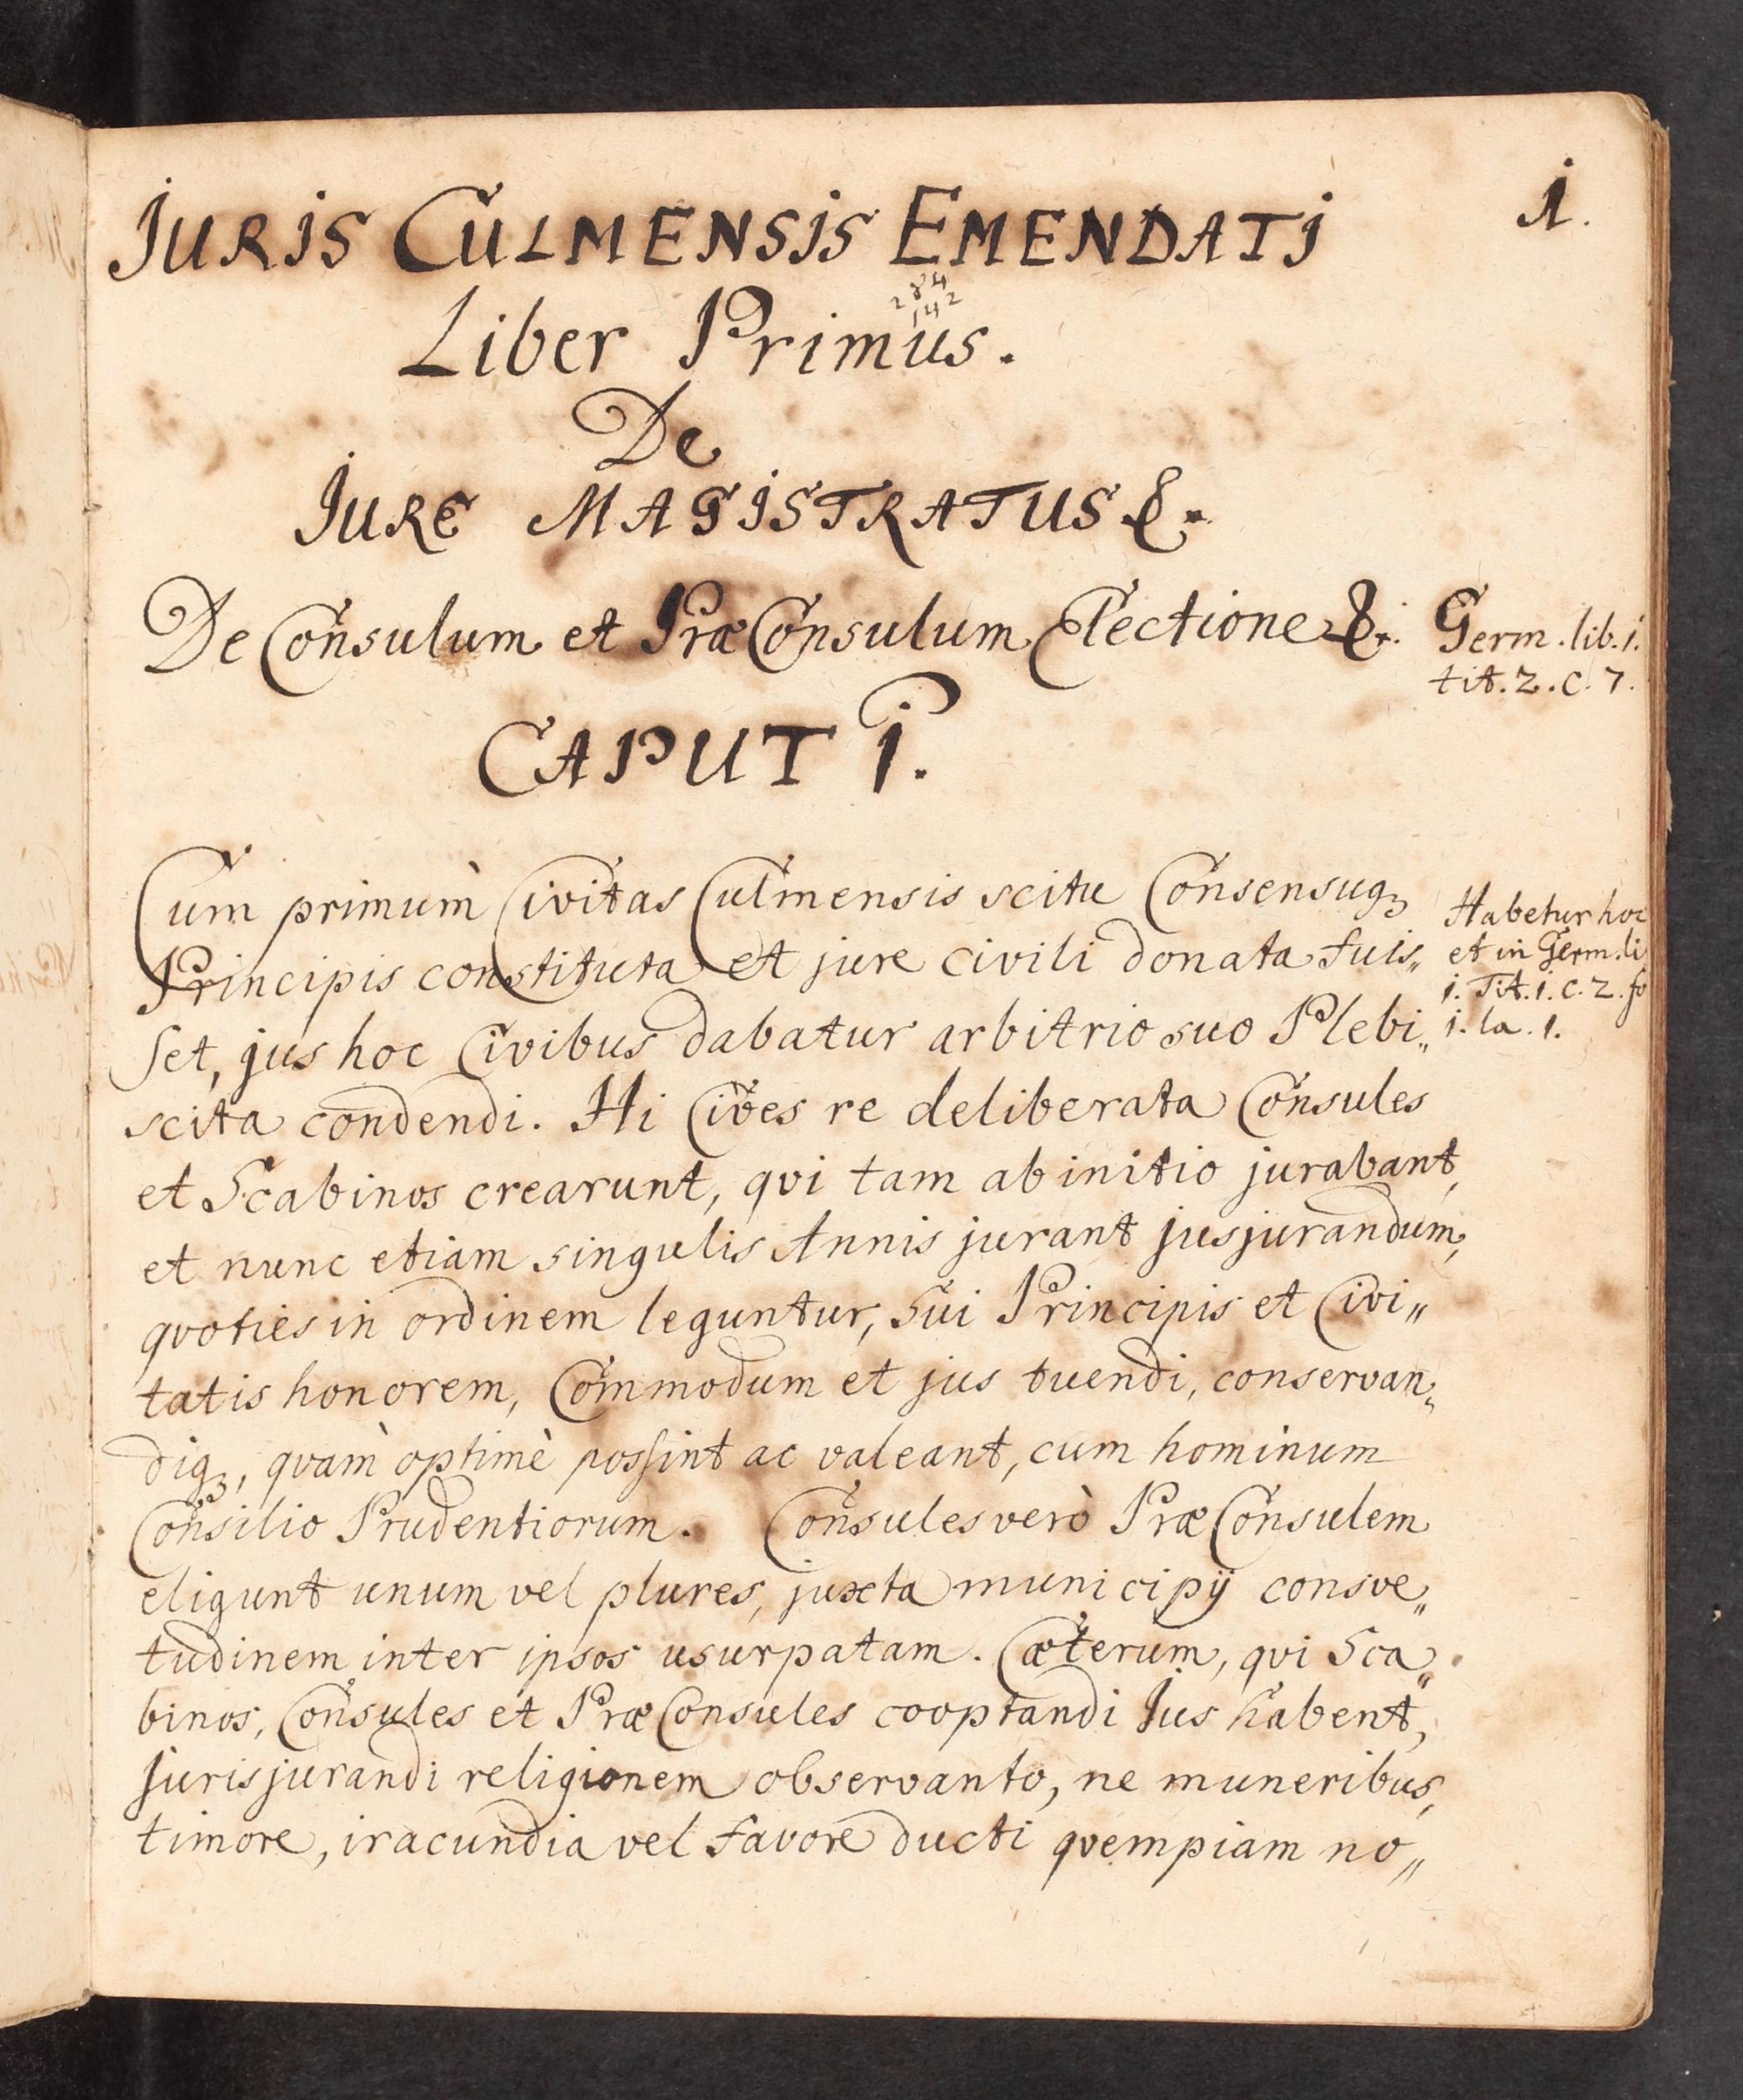 1.
JURIS CULMENSIS EMENDATI
284
142
Liber Primus.
De
JURE MAGISTRATUS &.
De Consulum et PræConsulum Electione &.
Germ. lib. 1.
tit. 2. c. 7.
CAPUT 1.
Cum primum̀ Civitas Culmensis scitu Consensuqꝫ
Principis constituta et jure civili donata fuis„
set, jus hoc Civibus dabatur arbitrio suo Plebi„
scita condendi. Hi Cives re deliberata Consules
et Scabinos crearunt, qvi tam ab initio jurabant,
et nunc etiam singulis Annis jurant jusjurandum,
qvoties in ordinem leguntur, Sui Principis et Civi„
tatis honorem, Commodum et jus tuendi, conservan„
diqꝫ, qvam̀ optimè possint ac valeant, cum hominum
Consilio Prudentiorum. Consules verò PræConsulem
eligunt unum vel plures, juxta municipij consve„
tudinem inter ipsos usurpatam. Cæterum, qvi Sca„
binos, Consules et PræConsules cooptandi Jus habent,
Jurisjurandi religionem observanto, ne muneribus,
timore, iracundia vel favore ducti qvempiam no„
Habetur hoc
et in Germ. li
1. Tit. 1. c. 2. fo
1. la. 1.